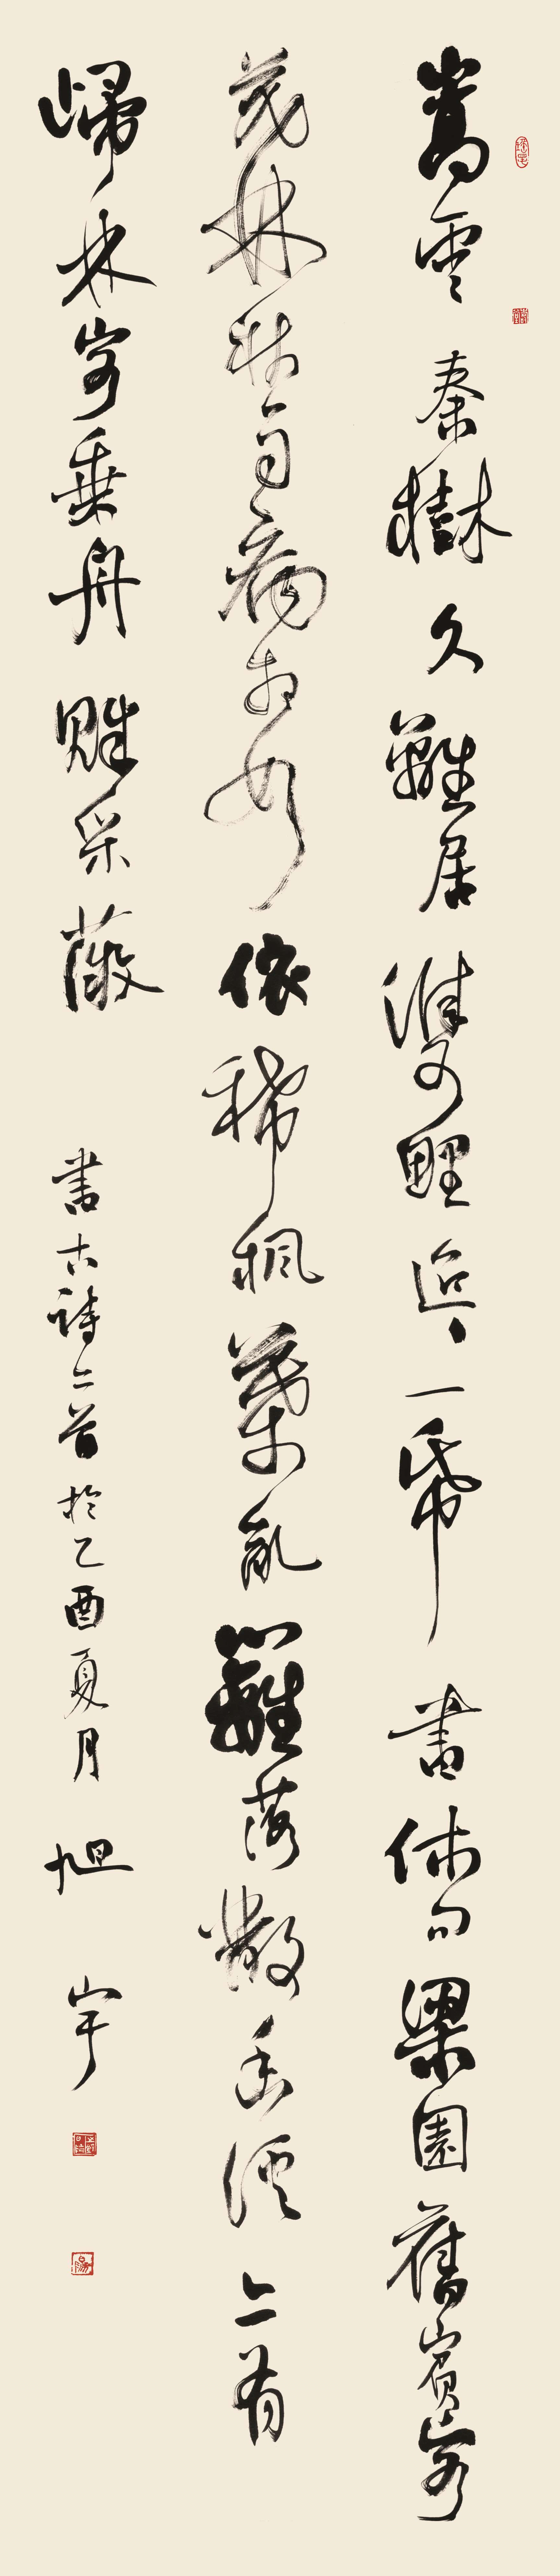 嵩雲秦樹久離居雙鯉迢迢一帋書休問梁園舊賓客
茂林秋雨病相如依稀楓葉亂籬落散徑有
歸林客乘舟賦采薇書古詩二首於乙酉夏月旭宇